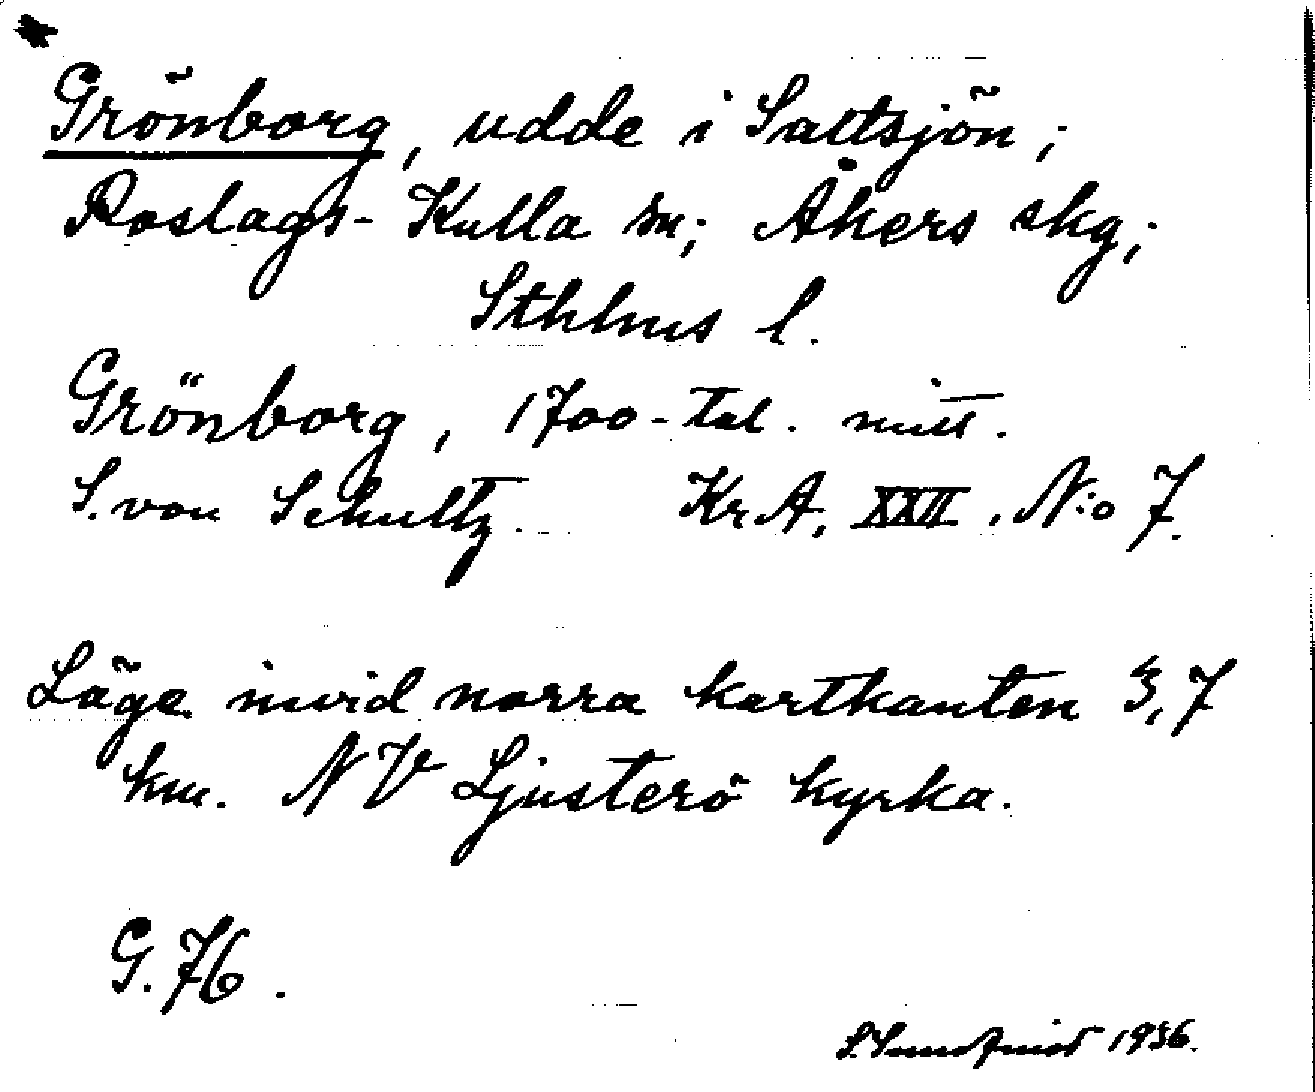 Grönborg, udde i Saltsjön;
Roslags-Kulla sn; Åkers skg;
Sthlms l.
Grönborg, 1700-tal. mitt.
S. von Schultz. Kr A, XXII. N:o 7.
Läge invid norra kartkanten 3,7
km. NV Ljusterö kyrka.
G. 76.
1936.